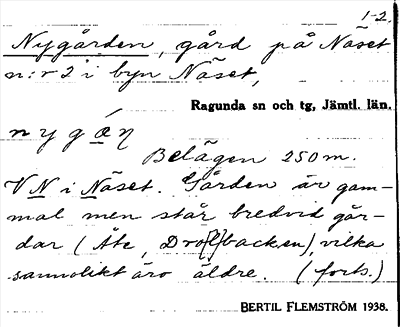 1-2.
Nygården, gård på Näset
n:r 2 i byn Näset,
Ragunda sn och tg, Jämtl. län.
Belägen 250 m.
V N i Näset. Gården är gam-
mal men står bredvid går-
dar (Åte, Dro[l]backen), vilka
sannolikt äro äldre. (forts.)
BERTIL FLEMSTRÖM 1938.